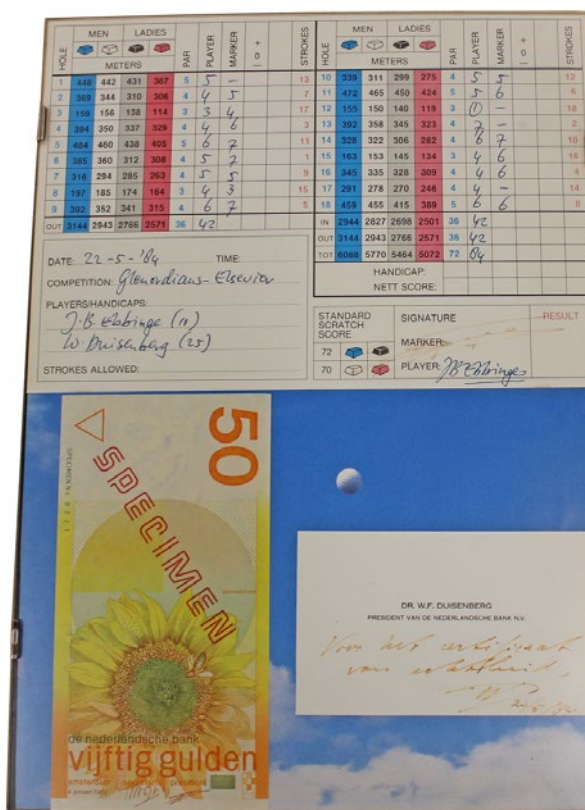 HOLE MEN LADIES PAR PLAYER MARKER + 0 - STROKES
METERS
1 448 442 431 367 5 5 - 13
2 369 344 310 306 4 4 5 7
3 159 156 138 114 3 3 4 17
4 394 350 337 329 4 4 6 3
5 484 460 438 405 5 6 7 11
6 385 360 312 308 4 5 7 1
7 316 294 285 263 4 5 5 9
8 197 185 174 164 3 4 3 15
9 392 352 341 315 4 6 7 5
OUT 3144 2943 2766 2571 36 42
HOLE MEN LADIES PAR PLAYER MARKER + 0 - STROKES
METERS
10 339 311 299 275 4 5 5 12
11 472 465 450 424 5 5 6 6
12 155 150 140 119 3 1 - 18
13 392 358 345 323 4 7 - 2
14 328 322 306 262 4 6 7 10
15 163 153 145 134 3 4 6 16
16 345 335 328 309 4 4 6 4
17 291 278 270 246 4 4 - 14
18 459 455 415 389 5 6 6 8
IN 2944 2827 2698 2501 36 42
OUT 3144 2943 2766 2571 36 42
TOT 6088 5770 5464 5072 72 84
HANDICAP:
NETT SCORE:
DATE: 22-5-'84 TIME:
COMPETITION: Glenordians-Elsevier
PLAYERS/HANDICAPS:
J.B. Ebbinge (10)
W. Duisenberg (25)
STROKES ALLOWED:
STANDARD SCRATCH SCORE
72
70
SIGNATURE RESULT
MARKER:
PLAYER: JB Ebbinge
50
SPECIMEN
de nederlandsche bank
vijftig gulden
amsterdam secretaris president
4 januari 1982
DR. W.F. DUISENBERG
PRESIDENT VAN DE NEDERLANDSCHE BANK N.V.
Voor het certificaat
van echtheid,